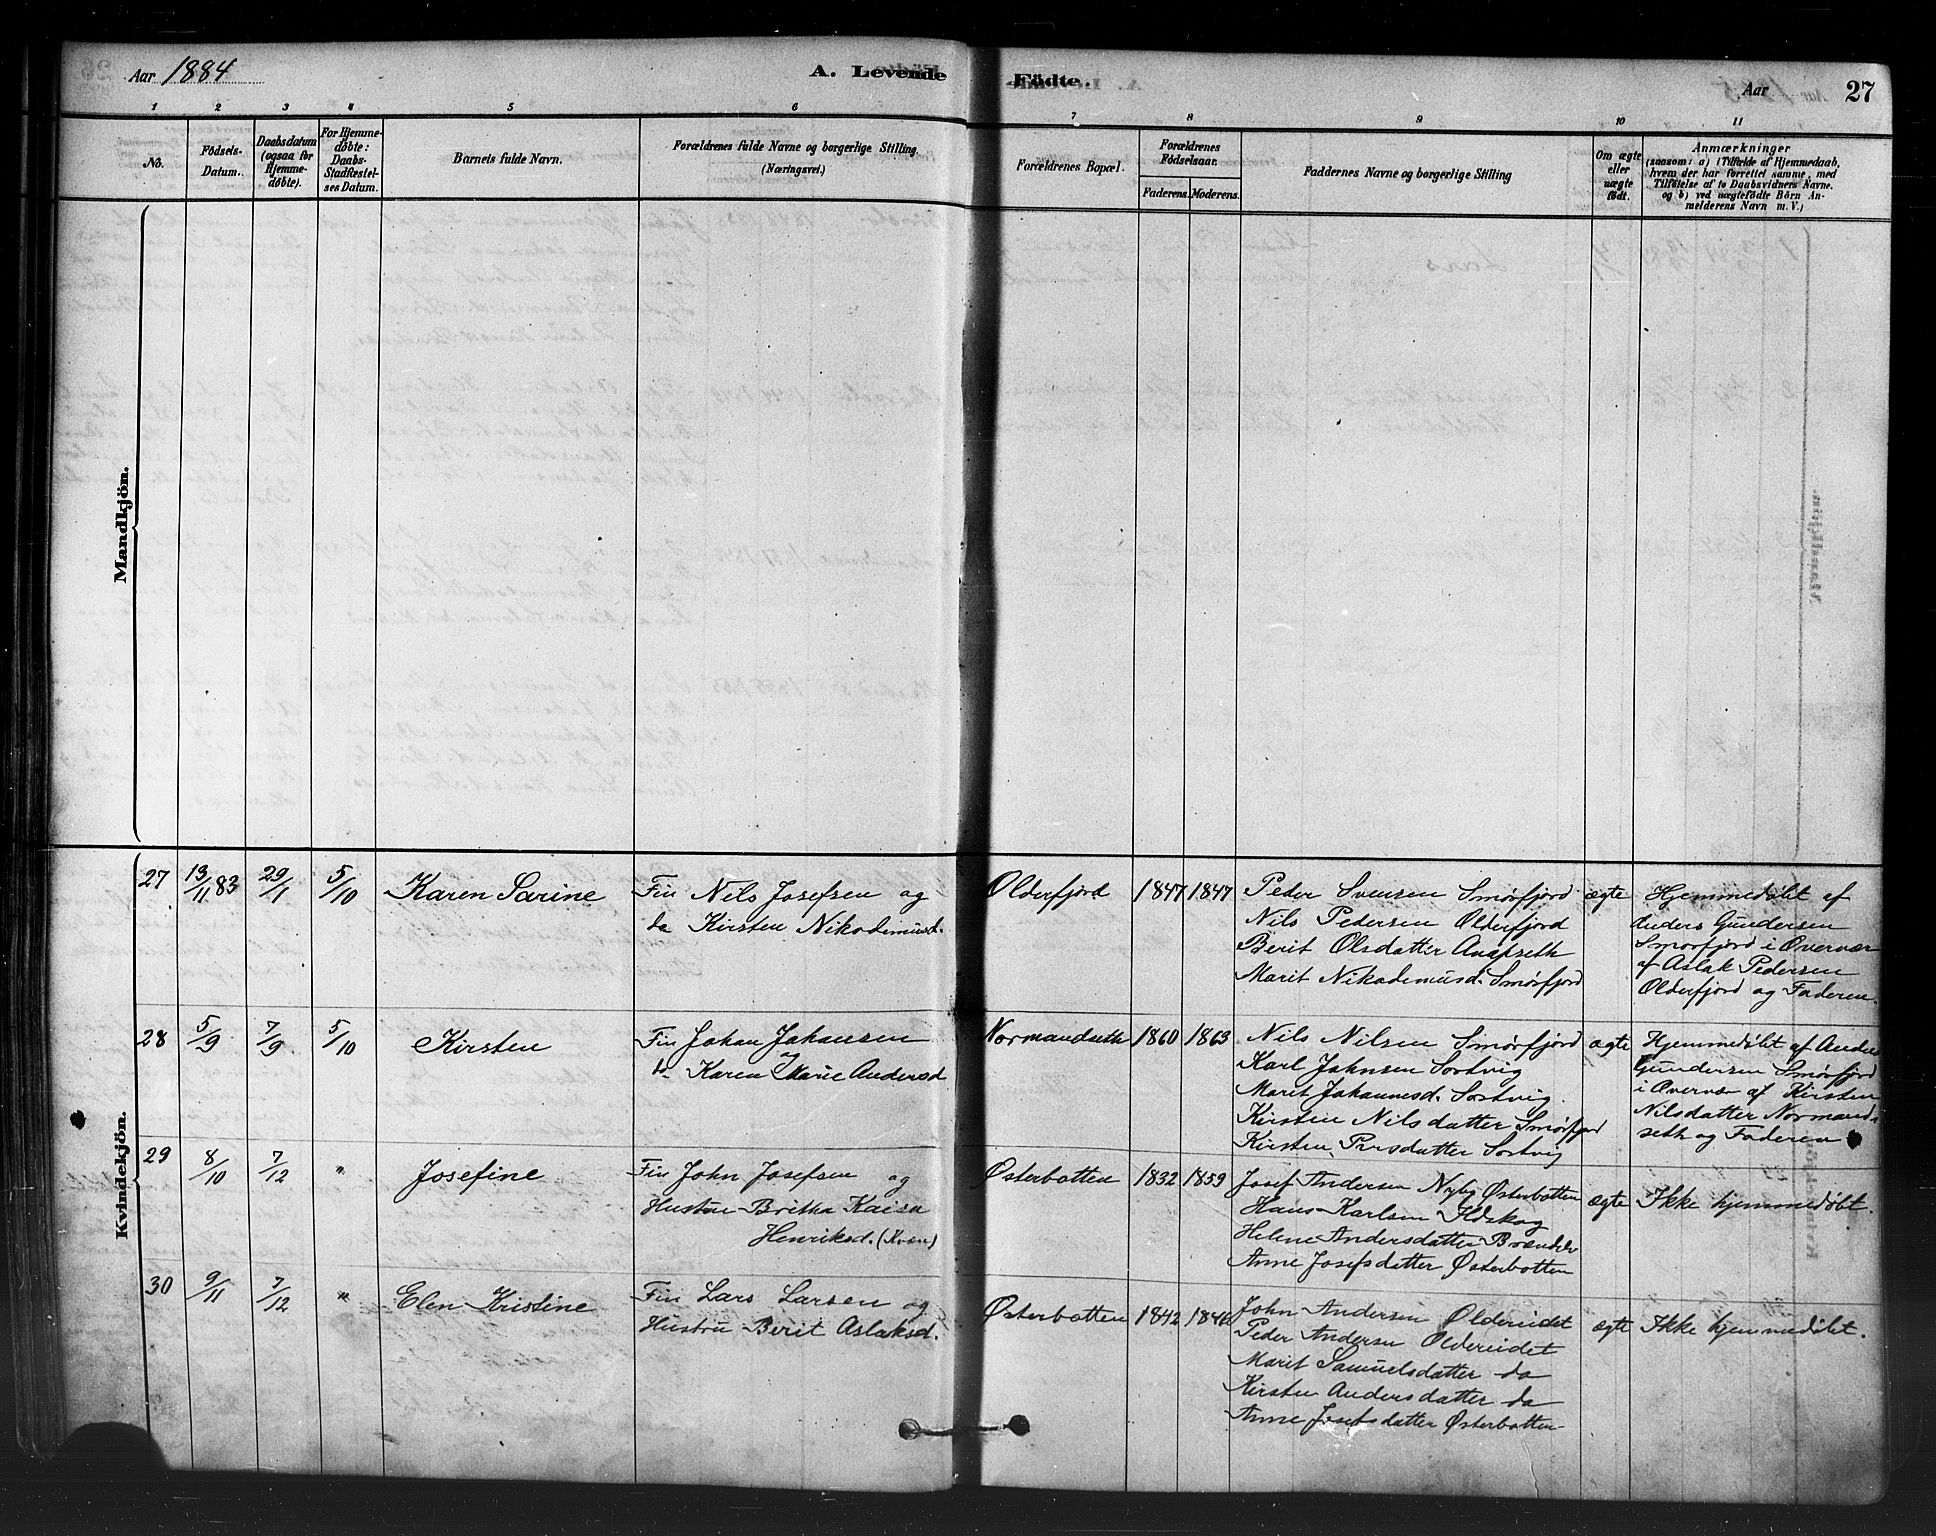 Aar 1884
A. Levende Födte.
Aar
27
1 2 3 4 5 6 7 8 9 10 11
No.
Födsels-Datum.
Daabsdatum (ogsaa for Hjemmedöbte).
For Hjemmedöbte: Daabs-Stadfæstelses Datum.
Barnets fulde Navn.
Forældrenes fulde Navne og borgerlige Stilling.
(Næringsvei.)
Forældrenes Bopæl.
Forældrenes Födselsaar.
Faderens. Moderens.
Faddernes Navne og borgerlige Stilling
Om ægte eller uægte födt.
Anmærkninger
(saasom: a) i Tilfælde af Hjemmedaab,
hvem der har forrettet samme, med
Tilföielse af to Daabsvidners Navne.
og b) ved uægtefödte Börn An-
melderens Navn m. V.)
Mandkjön.
Kvindekjön.
27 13/11 83 29/1 5/10 Karen Sarine
Fin Nils Josefsen og
do Kirsten Nikodemusd.
Olderfjord 1847 1847
Peder Svensen Smørfjord
Nils Pedersen Olderfjord
Berit Olsdatter
Marit Nikodemusd. Smørfjord
ægte
Hjemmedøbt af
Anders Gundersen
Smørfjord i Overvær
af Aslak Pedersen
Olderfjord og Faderen.
28 5/9 7/9 5/10 Kirsten
Fin Johan Johansen
og
do Karen Marie Andersd
Normandseth 1860 1863
Nils Nilsen Smørfjord
Karl Johnsen Sortvig
Marit Johannesd. Sortvig.
Kirsten Nilsdatter Smørfjord
Kirsten Persdatter Sortvig
ægte
Hjemmedøbt af Anders
Gundersen Smørfjord
i Overvær af Kirsten
Nilsdatter Normand-
seth og Faderen
29 8/10 7/12 " Josefine
Fin John Josefsen og
Hustru Britha Kaisa
Henriksd. (Kvæn)
Østerbotten 1832 1859
Josef Andersen Nyby Østerbotten
Hans Karlsen Ildskog
Helene Andersdatter Brændelv
Anne Josefsdatter Østerbotten
ægte
Ikke hjemmedøbt.
30 9/11 7/12 " Elen Kristine
Fin Lars Larsen og
Hustru Berit Aslaksd.
Østerbotten 1842
John Andersen Oldereidet
Peder Andersen Oldereidet
Marit Samuelsdatter do
Kirsten Andersdatter do
Anne Josefsdatter Østerbotten
ægte
Ikke hjemmedøbt.